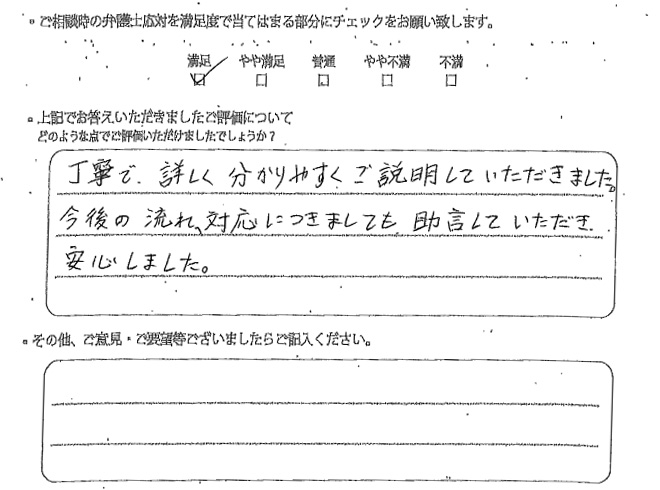 ご相談時の弁護士応対を満足度で当てはまる部分にチェックをお願い致します。
満足 やや満足 普通 やや不満 不満
上記でお答えいただきましたご評価について
どのような点でご評価いただけましたでしょうか？
丁寧で、詳しく 分かりやすく ご説明していただきました。
今後の流れ、対応につきましても 助言していただき
安心しました。
その他、ご意見・ご要望等ございましたらご記入ください。